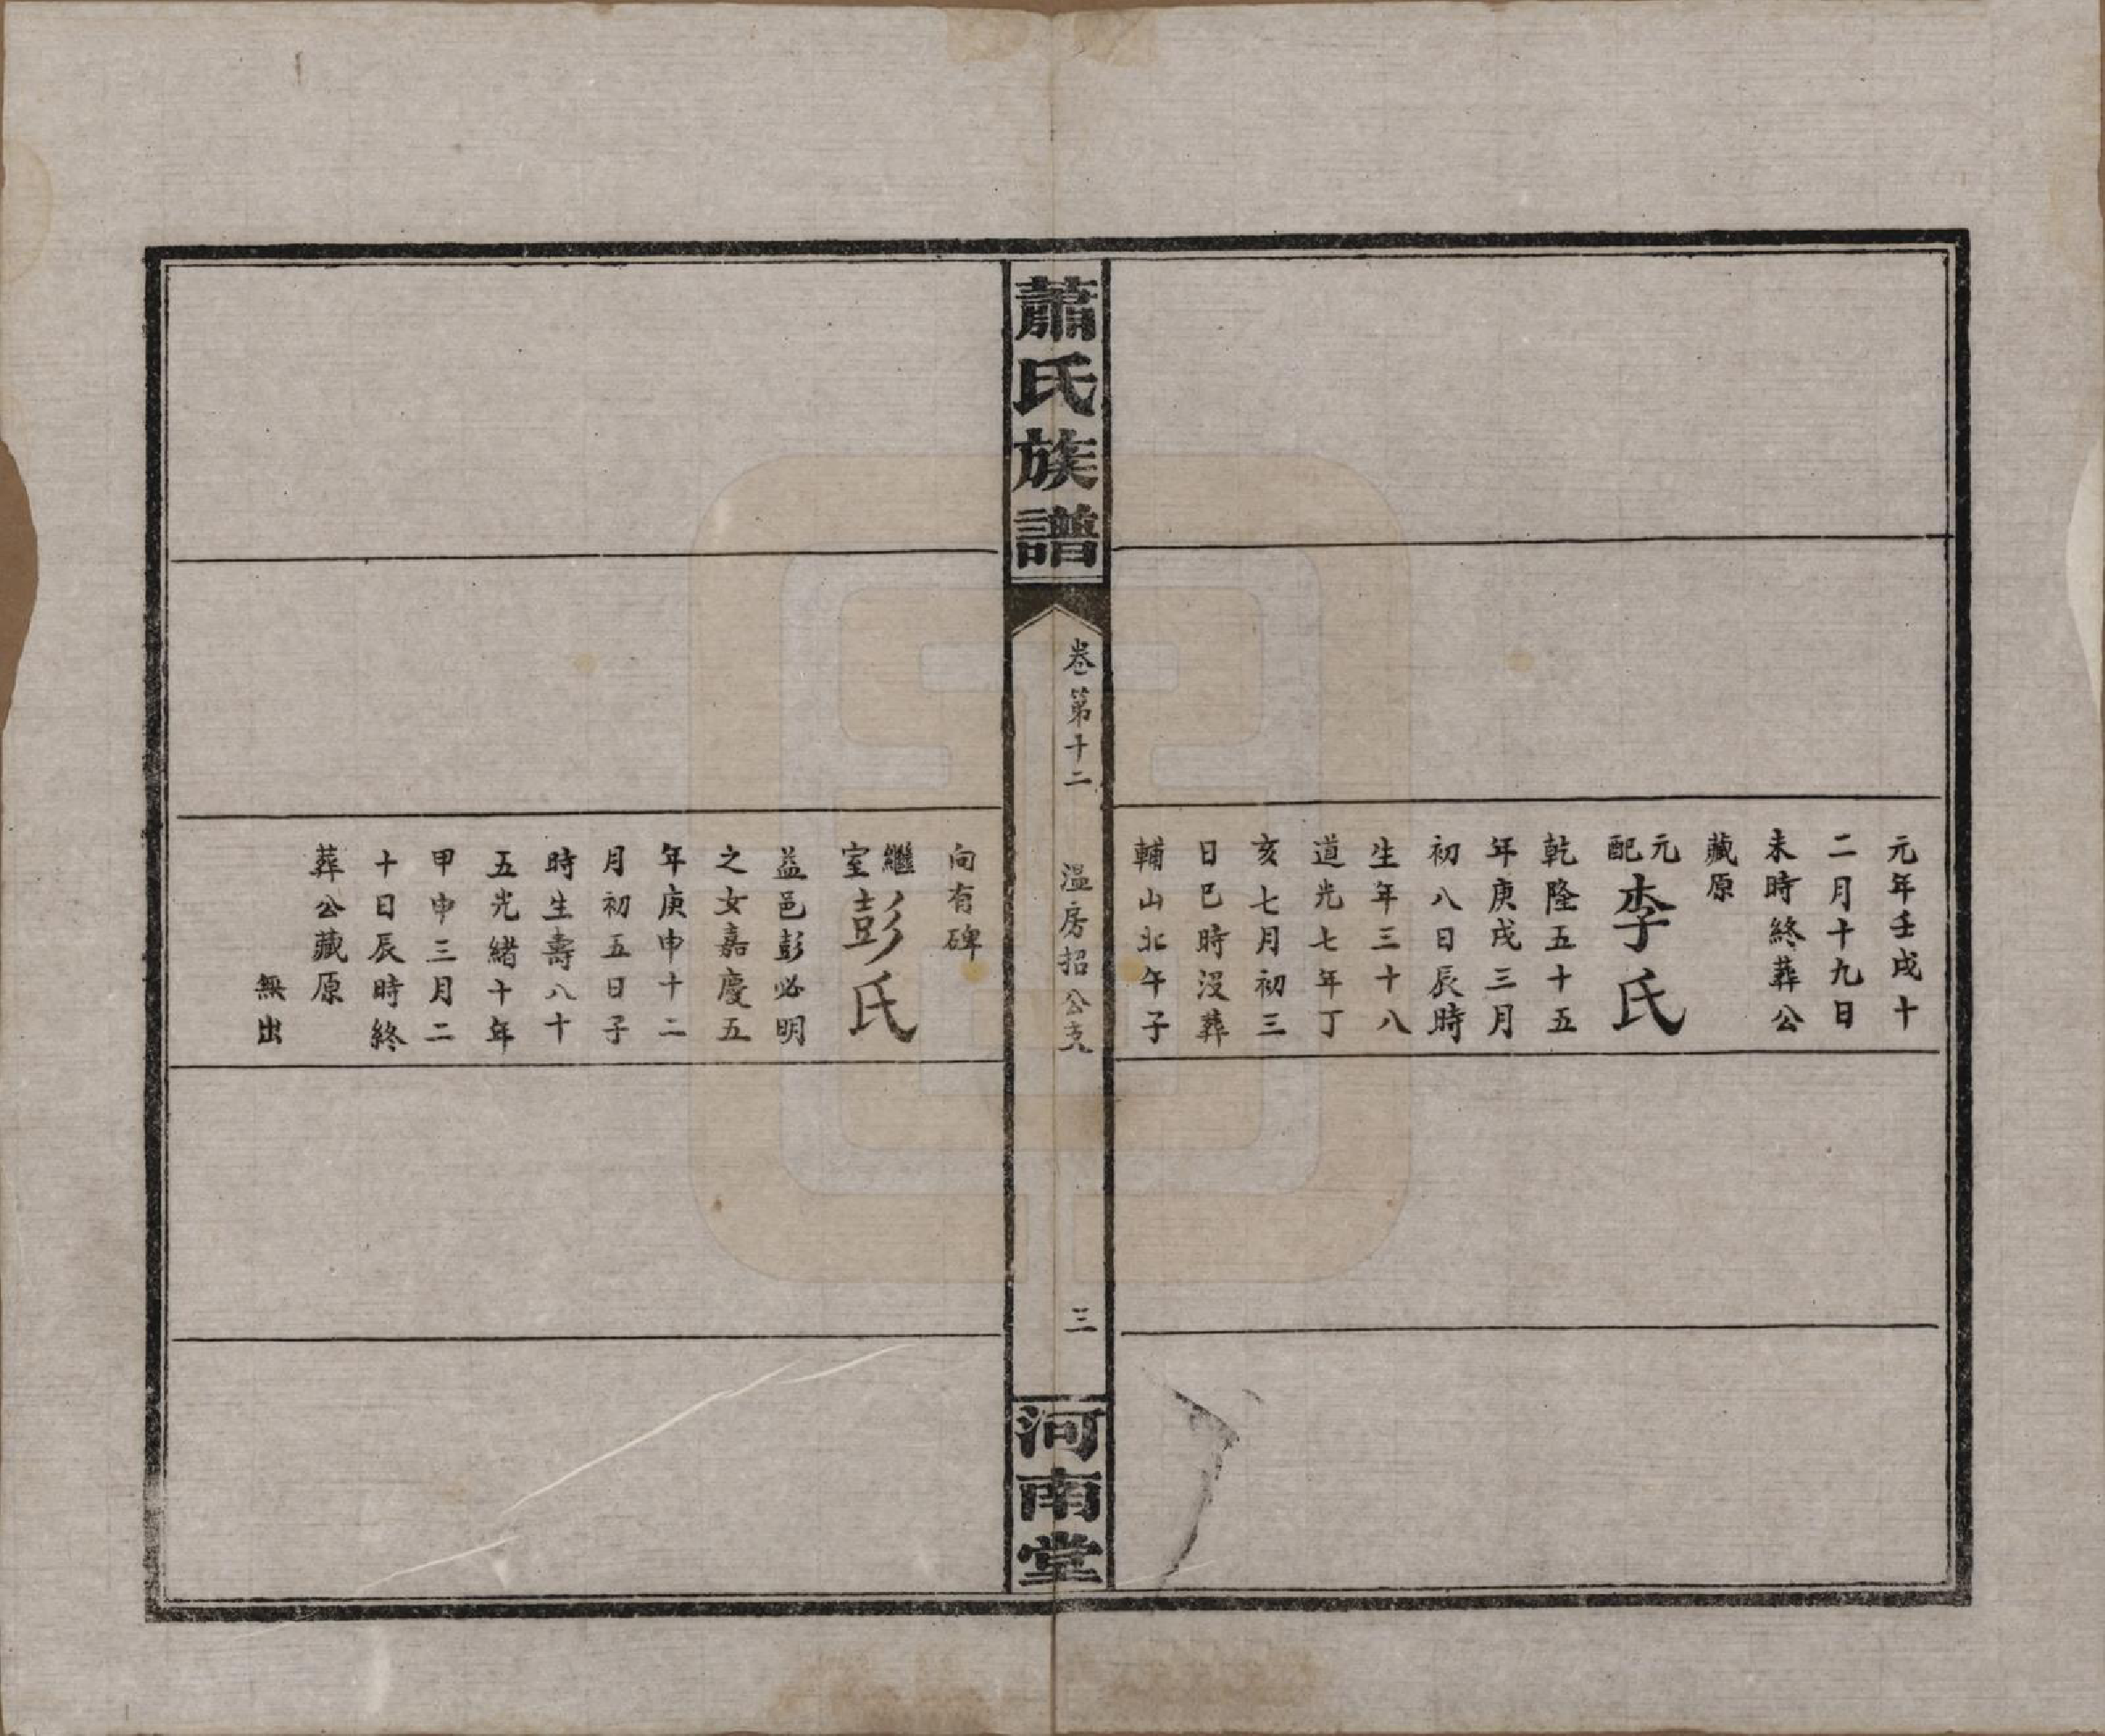 元年壬戌十
二月十九日
未時終葬公
藏原
元配李氏
乾隆五十五
年庚戌三月
初八日辰時
生年三十八
道光七年丁
亥七月初三
日巳時沒葬
輔山北午子
蕭氏族譜
卷第十二
溫房招公支
三
河南堂
向有碑
繼室彭氏
益邑彭必明
之女嘉慶五
年庚申十二
月初五日子
時生壽八十
五光緒十年
甲申三月二
十日辰時終
葬公藏原
無出